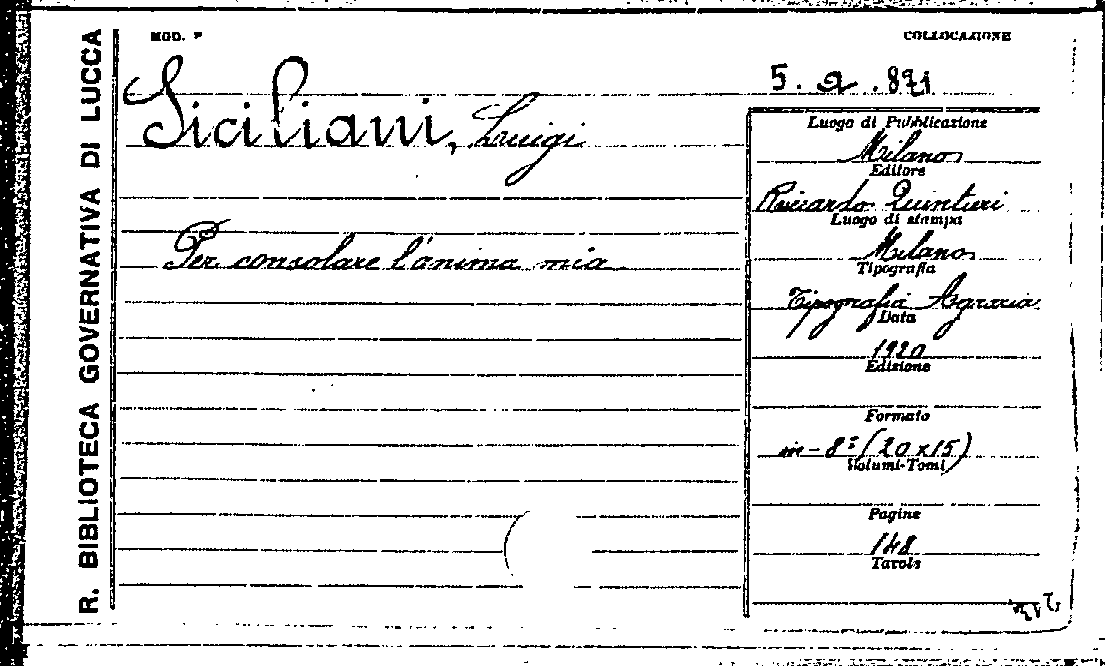 R. BIBLIOTECA GOVERNATIVA DI LUCCA
MOD. P
COLLOCAZIONE
5. a. 871
Siciliani, Luigi
Per consolare l'anima mia
Luogo di Pubblicazione
Milano
Editore
Riccardo Quintieri
Luogo di stampa
Milano
Tipografia
Tipografia Agraria
Data
1920
Edizione
Formato
in-8º (20x15)
Volumi-Tomi
Pagine
148
Tavole